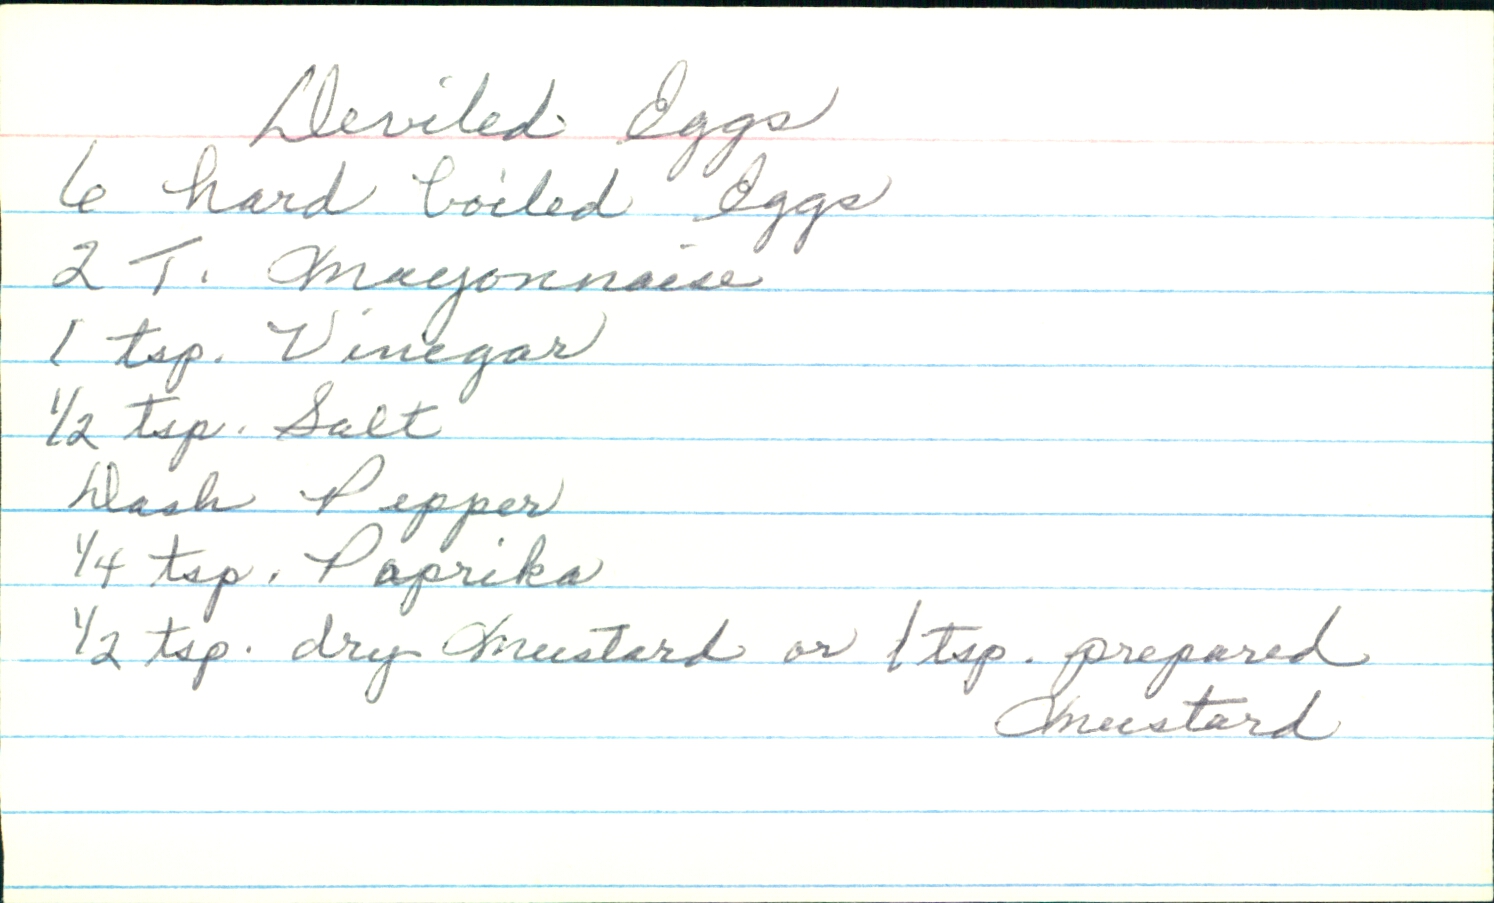 Deviled Eggs
6 hard boiled Eggs
2 T. Mayonnaise
1 tsp. Vinegar
1/2 tsp. Salt
Dash Pepper
1/4 tsp. Paprika
1/2 tsp. dry Mustard or 1 tsp. prepared
Mustard